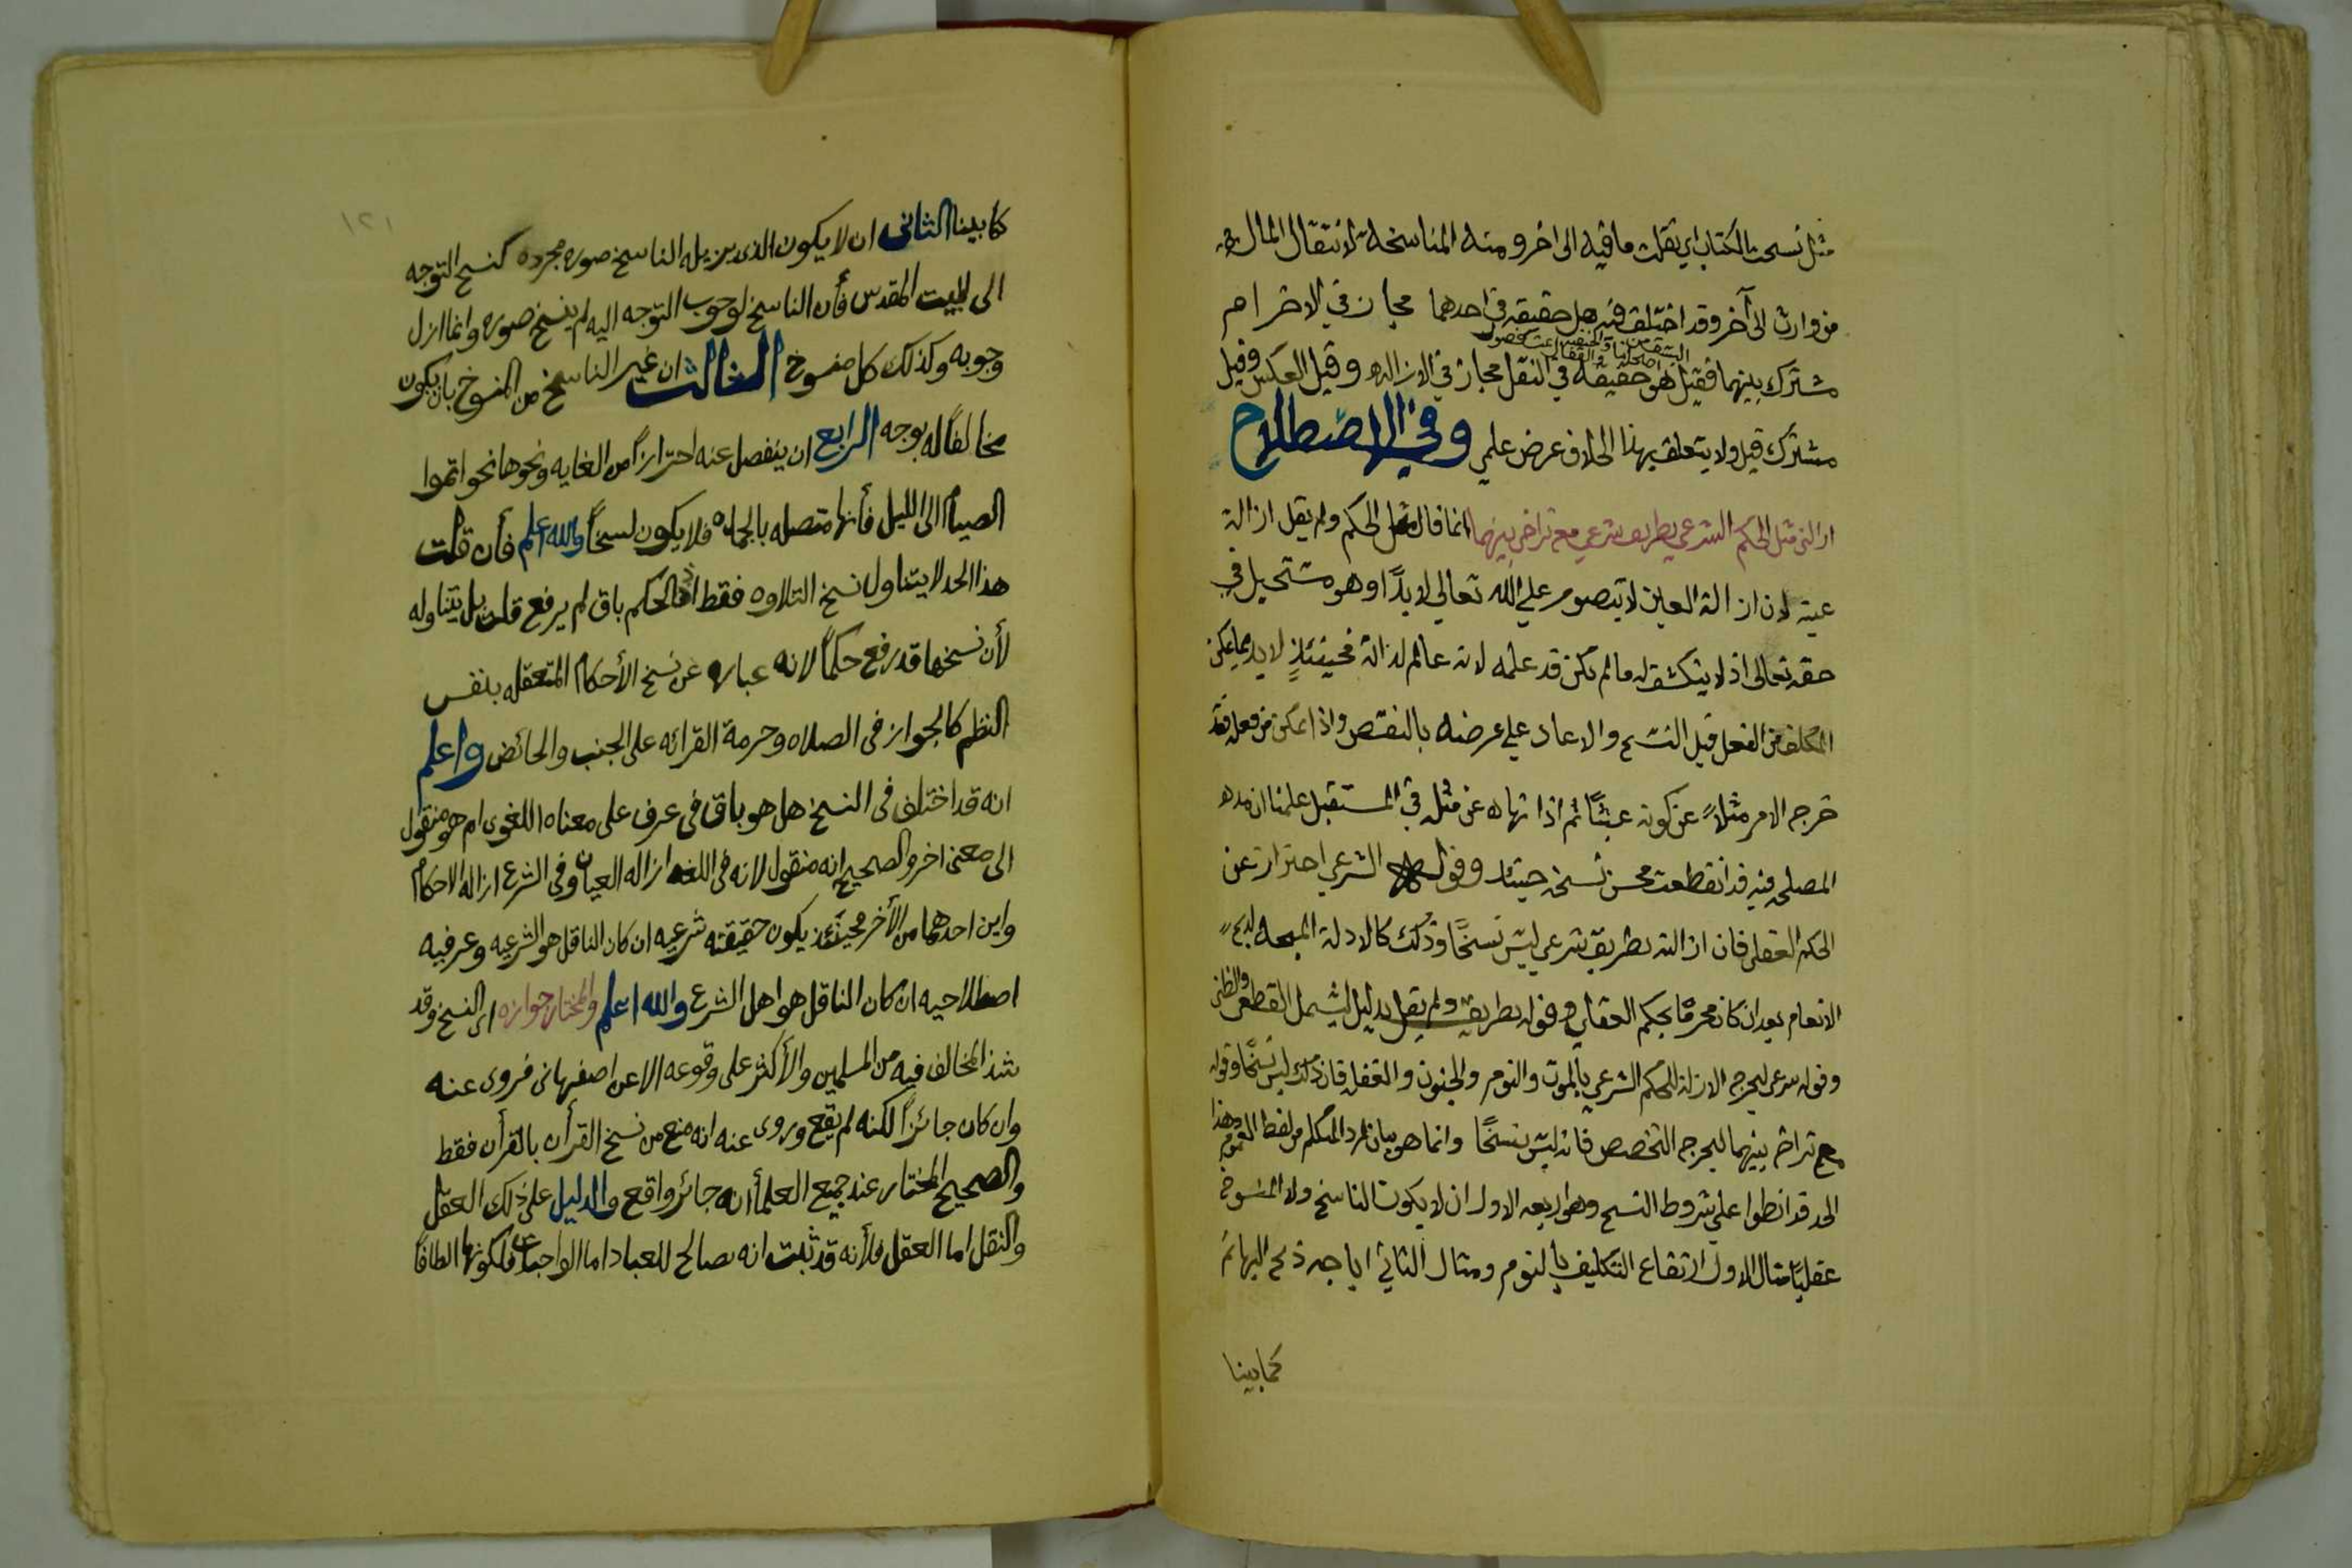 مثل نسخت الكتاب اي نقلت ما فيه الى اخر ومنه المناسخه لانتقال المال فيه
من وارث الى آخر وقد اختلف فيه هل حقيقه في احدهما مجاز في الاخر ام
مشترك بينهما فقيل هو حقيقه في النقل مجاز في الازاله وقيل العكس وقيل
مشترك قيل ولا يتعلق بهذا الخلاف غرض علمي وفي الاصطلاح
ازالة مثل الحكم الشرعي بطريق شرعي مع تراخ بينهما انما قال مثل الحكم ولم يقل ازالة
عينه لان ازالة العين لا تتصور على الله تعالى لابدًا وهو مستحيل في
حقه تعالى اذ لا ينكشف له ما لم يكن قد علمه لانه عالم لذاته فحينئذٍ لابد مما يمكن
المكلف من الفعل قبل النسخ والا عاد على غرضه بالنقص واذا تمكن من فعله فقد
خرج الامر مثلاً عن كونه عبثًا ثم اذا نهاه عن مثله في المستقبل علمنا ان مده
المصلحه فيه قد انقطعت فحسن نسخه حينئذ وقوله الشرعي احتراز عن
الحكم العقلي فان ازالته بطريق شرعي ليس نسخًا وذلك كالادلة المبيحه لذبح
الانعام بعد ان كان محرمًا بحكم العقل وقوله بطريق ولم يقل بدليل ليشمل القطعي والظني
وقوله شرعي ليخرج الازاله للحكم الشرعي بالموت والنوم والجنون والغفله فان ذلك ليس نسخًا وقوله
مع تراخ بينهما ليخرج التخصيص فانه ليس بنسخًا وانما هو بيان مراد المتكلم من لفظ العموم وهذا
الحد قد انطوا على شروط النسخ وهي اربعه الاول ان لا يكون الناسخ ولا المنسوخ
عقليًا مثال الاول ارتفاع التكليف بالنوم ومثال الثاني اباحه ذبح البهائم
كما بينا
١٢١
كما بينا الثانى ان لا يكون الذى يزيله الناسخ صوره مجرده كنسخ التوجه
الى لبيت المقدس فأن الناسخ لوجوب التوجه اليه لم ينسخ صوره وانما ازل
وجوبه وكذلك كل منسوخ الثالث ان غير الناسخ من المنسوخ بان يكون
مخالفًا له بوجه الرابع ان ينفصل عنه احترازًا من الغايه ونحوها نحو اتموا
الصيام الى الليل فأنها متصله بالجمله فلا يكون نسخًا والله اعلم فأن قلت
هذا الحد لا يتناول نسخ التلاوه فقط اذ الحكم باق لم يرفع قلت بل يتناوله
لأن نسخها قد رفع حكمًا لانه عباره عن نسخ الأحكام المتعقله بنفس
النظم كالجواز فى الصلاه وحرمة القرائه على الجنب والحائض واعلم
انه قد اختلف فى النسخ هل هو باق فى عرف على معناه اللغوى ام هو منقول
الى معنى اخر والصحيح انه منقول لانه فى اللغه ازاله العيان وفى الشرع ازاله الاحكام
واين احدهما من الأخر فحينئذ يكون حقيقته شرعيه ان كان الناقل هو الشرعيه وعرفيه
اصطلاحيه ان كان الناقل هو اهل الشرع والله اعلم والمختار جوازه اى النسخ وقد
شذ المخالف فيه من المسلمين والأكثر على وقوعه الا عن اصفهانى فروى عنه
وان كان جائزًا لكنه لم يقع وروى عنه انه منع من نسخ القرأن بالقرأن فقط
والصحيح المختار عند جميع العلمأ أنه جائز واقع والدليل على ذلك العقل
والنقل اما العقل فلأنه قد ثبت انه مصالح للعباد اما الواجبات فلكونها الطافًا